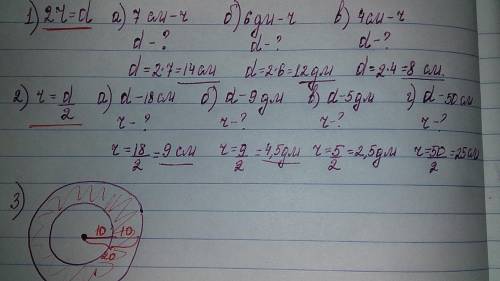 1) 2r = d а) 7 см - r б) 6 дм - r в) 4 см - r
d - ? d - ? d - ?
d = 2·7 = 14 см d = 2·6 = 12 дм d = 2·4 = 8 см.
2) r = d/2 а) d - 18 см б) d - 9 дм в) d - 5 дм г) d - 50 см
r - ? r - ? r - ? r - ?
r = 18/2 = 9 см r = 9/2 = 4,5 дм r = 5/2 = 2,5 дм r = 50/2 = 25 см
3)
10 10
20